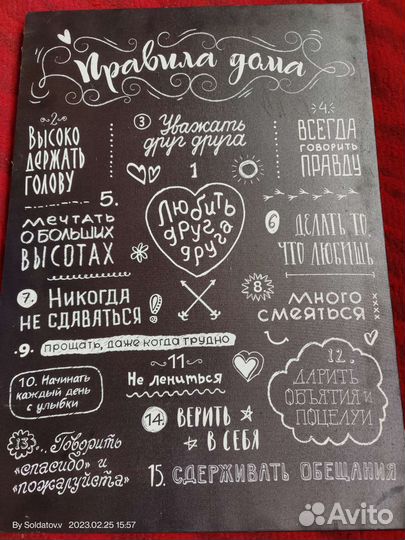 Правила дома
2.
Высоко
держать
голову
3 Уважать
друг друга
4.
ВСЕГДА
говорить
ПРАВДУ
1
Любить
друг
друга
5.
мечтать
о больших
высотах
6 ДЕЛАТЬ ТО,
ЧТО ЛЮБИШЬ
7. Никогда
не сдаваться!
8.
много
смеяться
xxxx
9. прощать, даже когда трудно
10. Начинать
каждый день
с улыбки
11
Не лениться
12.
ДАРИТЬ
ОБЪЯТИЯ и
ПОЦЕЛУИ
13. Говорить
«спасибо» и
«пожалуйста»
14. ВЕРИТЬ
В СЕБЯ
15. СДЕРЖИВАТЬ ОБЕЩАНИЯ
By Soldatov.v 2023.02.25 15:57
Avito